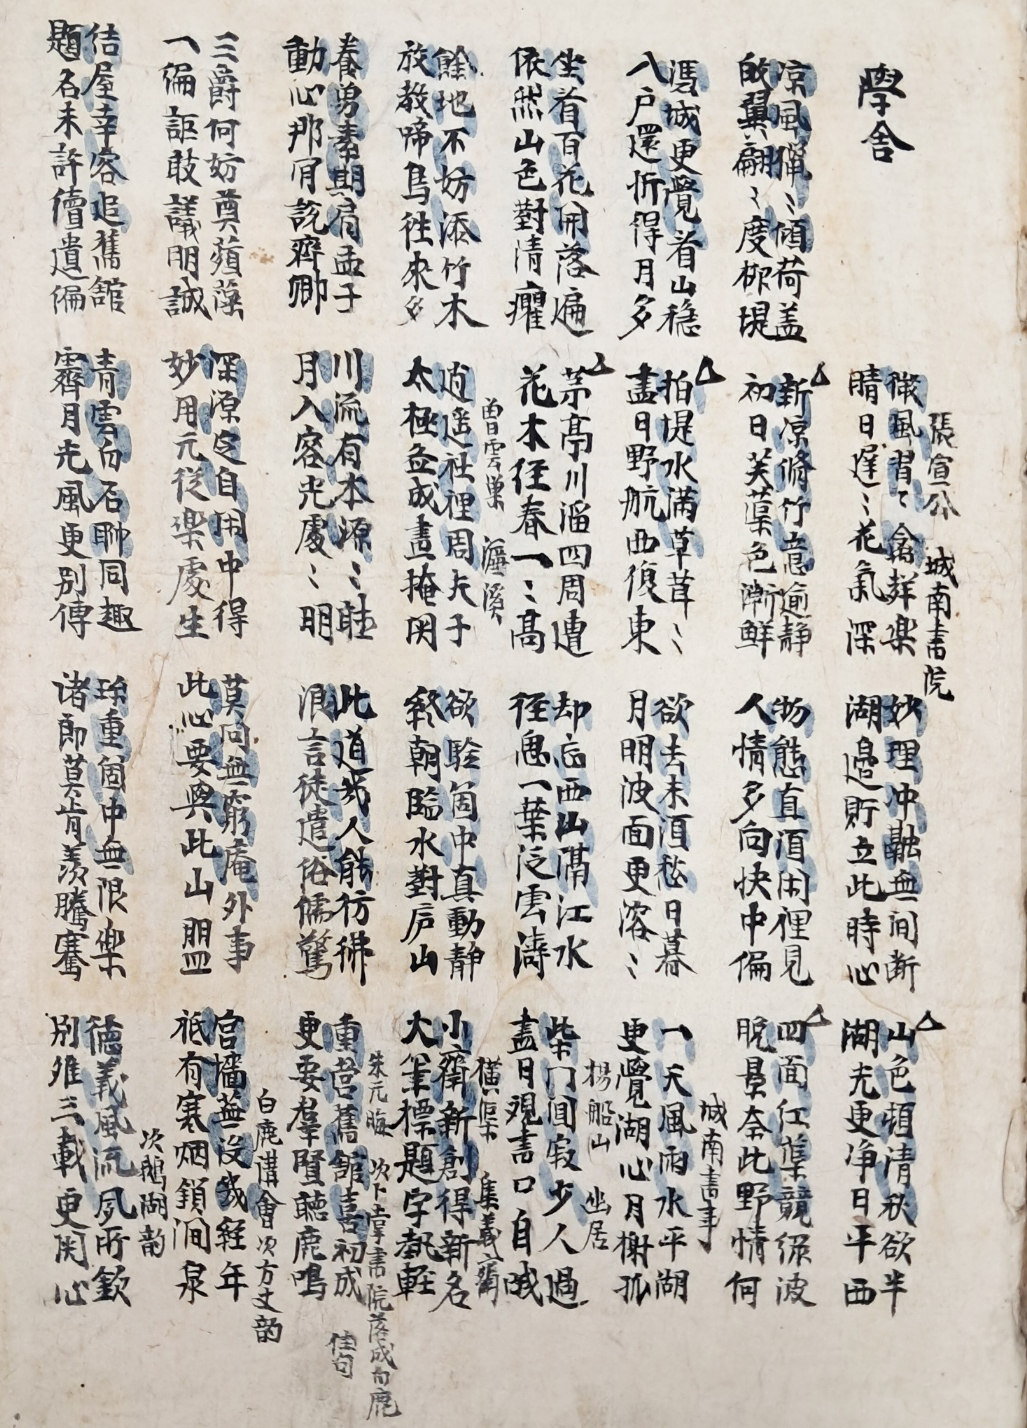 學舍
張宣公　城南書院
微風習〻禽聲樂
晴日遲〻花氣深
妙理冲融無间断
湖邉貯立此時心
山色頓清秋欲半
湖光更净日平西
凉風獵〻傾荷盖
翼翩〻度柳堤
新凉脩竹意逾静
初日芙蕖色漸鲜
物態直須闲裡見
人情多向快中偏
四面红蕖競緑波
晚景奈此野情何
馮城更覺看山穩
八户還忻得月多
拍堤水满草茸〻
盡日野航西復東
欲去未須愁日暮
月明波面更溶〻
城南書事
一天風雨水平湖
更覺湖心月榭孤
坐看百花開落遍
依然山色對清癯
茅亭川溜四周遭
花木径春一〻高
却忘西山隔江水
径思一葉泛雲濤
楊船山　幽居
柴门闃寂少人過
盡日觀書口自哦
餘地不妨添竹木
放教啼鳥往來多
曾雲巢　濂溪
逍遥社裡周夫子
太極啚成晝掩関
欲驗箇中真動静
終朝臨水對庐山
橫渠　集義齋
小齋新創得新名
大筆標題字執輕
養勇素期肩孟子
動心那肎說齊卿
川流有本源〻眭
月入容光處〻明
此道幾人能彷彿
浪言徒遣俗儒驚
朱元晦　次卜掌書院落成白鹿佳句
重營舊館喜初成
更要羣賢聽鹿鳴
三爵何妨奠蘋藻
一编詎敢議明誠
深源定自闲中得
妙用元從樂處生
莫向無窮庵外事
此心要與此山盟
白鹿講會次方丈韵
宫墻蕪没幾經年
祗有寒烟鎖澗泉
结屋幸容追舊舘
題名未許續遺编
青雲白石聊同趣
霽月光風更别傳
珎重箇中無限樂
诸郎莫肯羨騰騫
次鵝湖韵
德義風流夙所欽
别離三載更関心